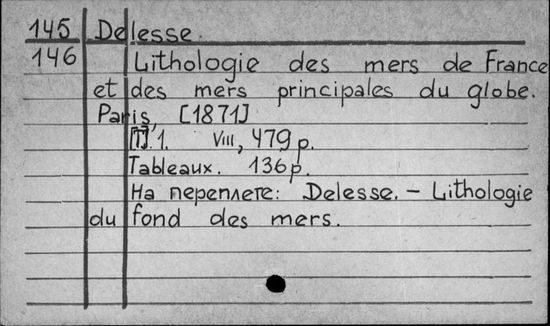 145 Delesse.
146 Lithologie des mers de France
et des mers principales du globe.
Paris, [1871]
[T]. 1. VIII, 479 p.
Tableaux. 136 p.
На переплете: Delesse. — Lithologie
du fond des mers.